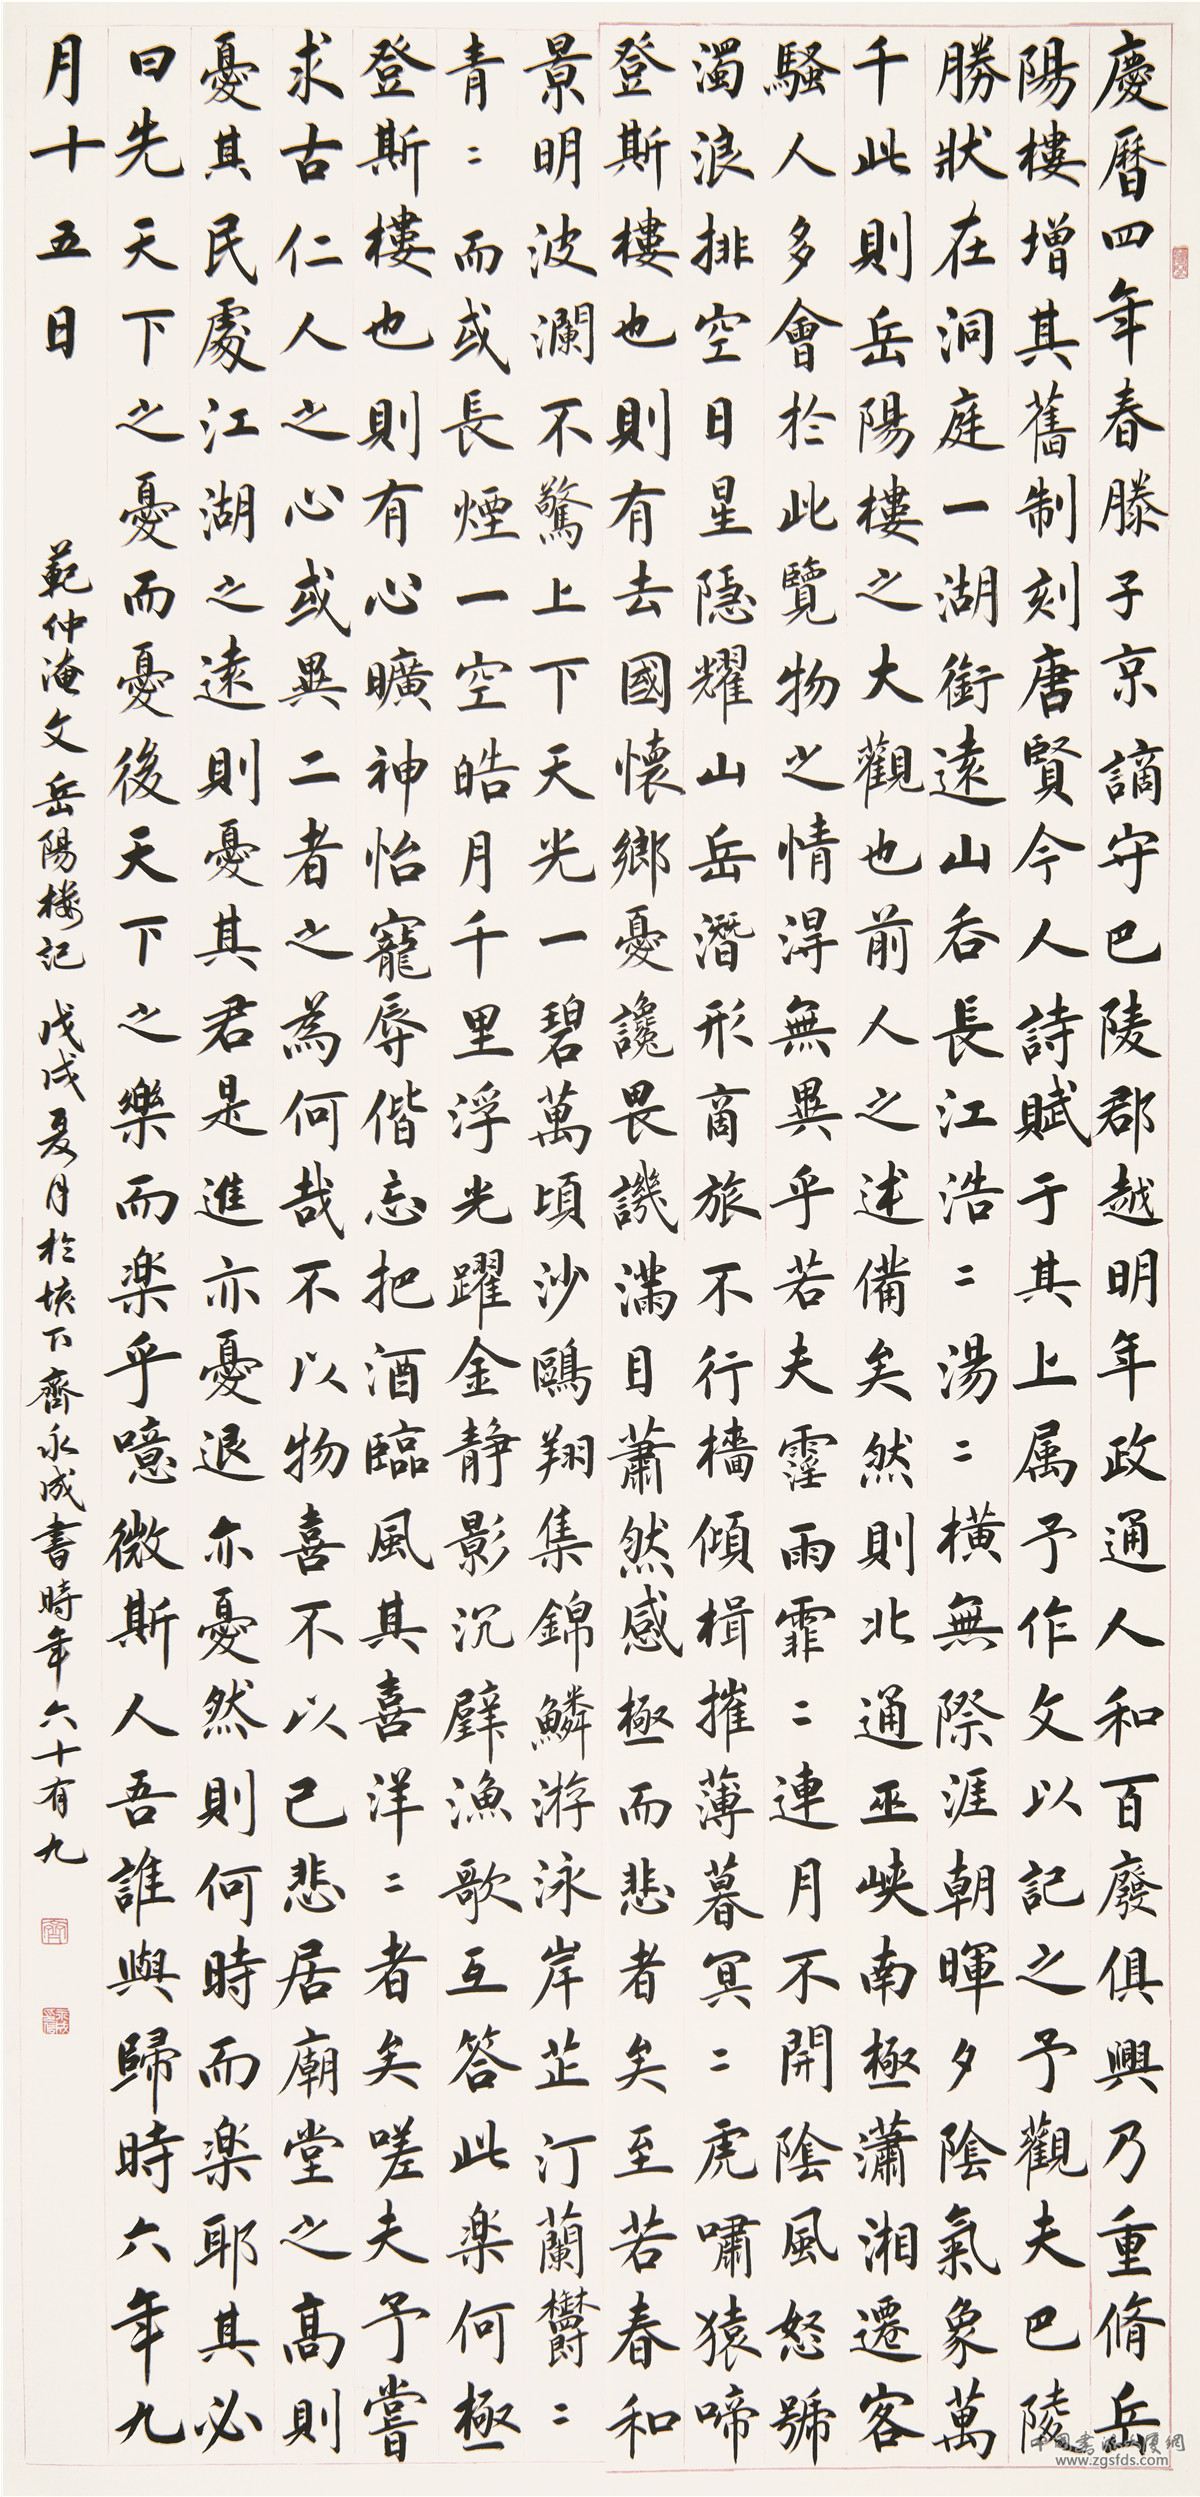 慶曆四年春滕子京謫守巴陵郡越明年政通人和百廢俱興乃重脩岳
陽樓增其舊制刻唐賢今人詩賦于其上属予作文以記之予觀夫巴陵
勝狀在洞庭一湖銜遠山吞長江浩二湯二橫無際涯朝暉夕陰氣象萬
千此則岳陽樓之大觀也前人之述備矣然則北通巫峽南極瀟湘遷客
騷人多會於此覽物之情淂無異乎若夫霪雨霏二連月不開陰風怒號
濁浪排空日星隱耀山岳潛形商旅不行檣傾楫摧薄暮冥二虎嘯猿啼
登斯樓也則有去國懷鄉憂讒畏譏滿目蕭然感極而悲者矣至若春和
景明波瀾不驚上下天光一碧萬頃沙鷗翔集錦鱗游泳岸芷汀蘭欝二
青二而或長煙一空皓月千里浮光躍金静影沉璧漁歌互答此楽何極
登斯樓也則有心曠神怡寵辱偕忘把酒臨風其喜洋二者矣嗟夫予嘗
求古仁人之心或異二者之為何哉不以物喜不以己悲居廟堂之高則
憂其民處江湖之遠則憂其君是進亦憂退亦憂然則何時而楽耶其必
曰先天下之憂而憂後天下之樂而楽乎噫微斯人吾誰與歸時六年九
月十五日
範仲淹文岳陽楼記戊戌夏月於垓下齊永成書時年六十有九
中国書法大厦網
www.zgsfds.com